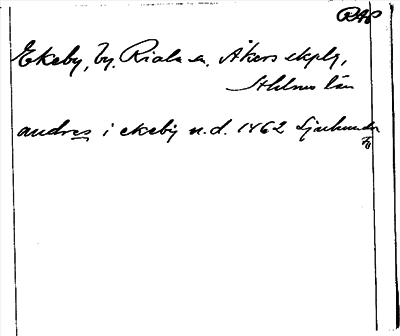 RAÄ
Ekeby, by. Riala sn. Åkers skplg,
Sthlms län
andres i ekeby n.d. 1462 Sjuhundra